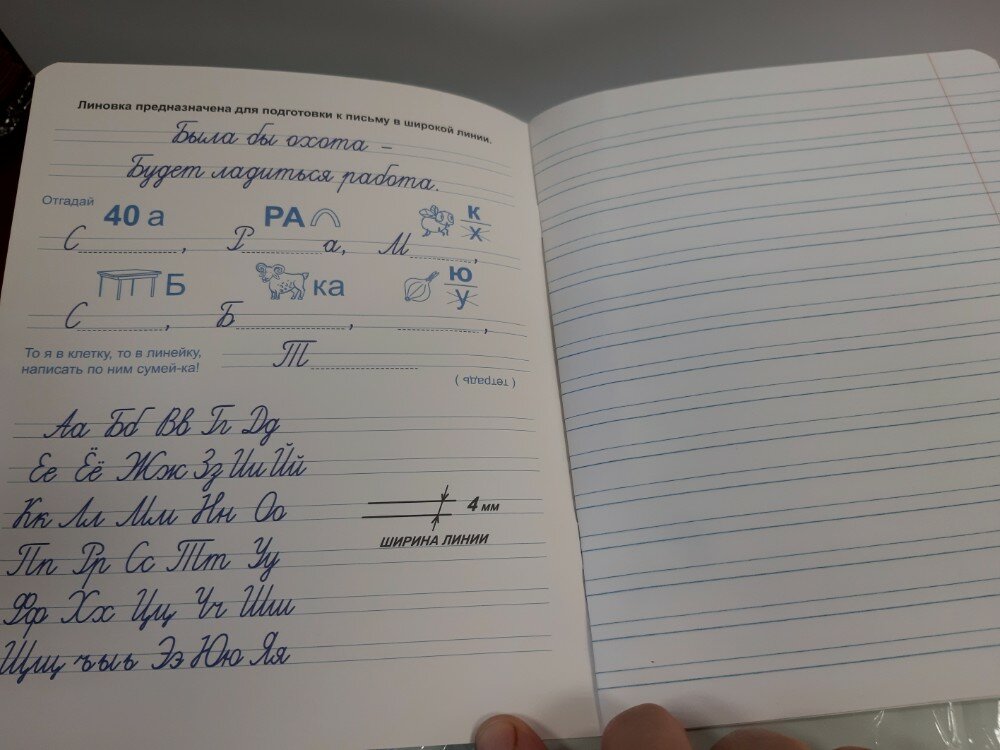 Линовка предназначена для подготовки к письму в широкой линии.
Была бы охота –
Будет ладиться работа.
Отгадай
40 а РА К Х
С , Р а, М ,
Б ка Ю У
С , Б , ,
То я в клетку, то в линейку,
написать по ним сумей-ка!
Т
( тетрадь )
Аа Бб Вв Гг Дд
Ее Ёё Жж Зз Ии Йй
Кк Лл Мм Нн Оо
4 мм
ШИРИНА ЛИНИИ
Пп Рр Сс Тт Уу
Фф Хх Цц Чч Шш
Щщ ъыь Ээ Юю Яя